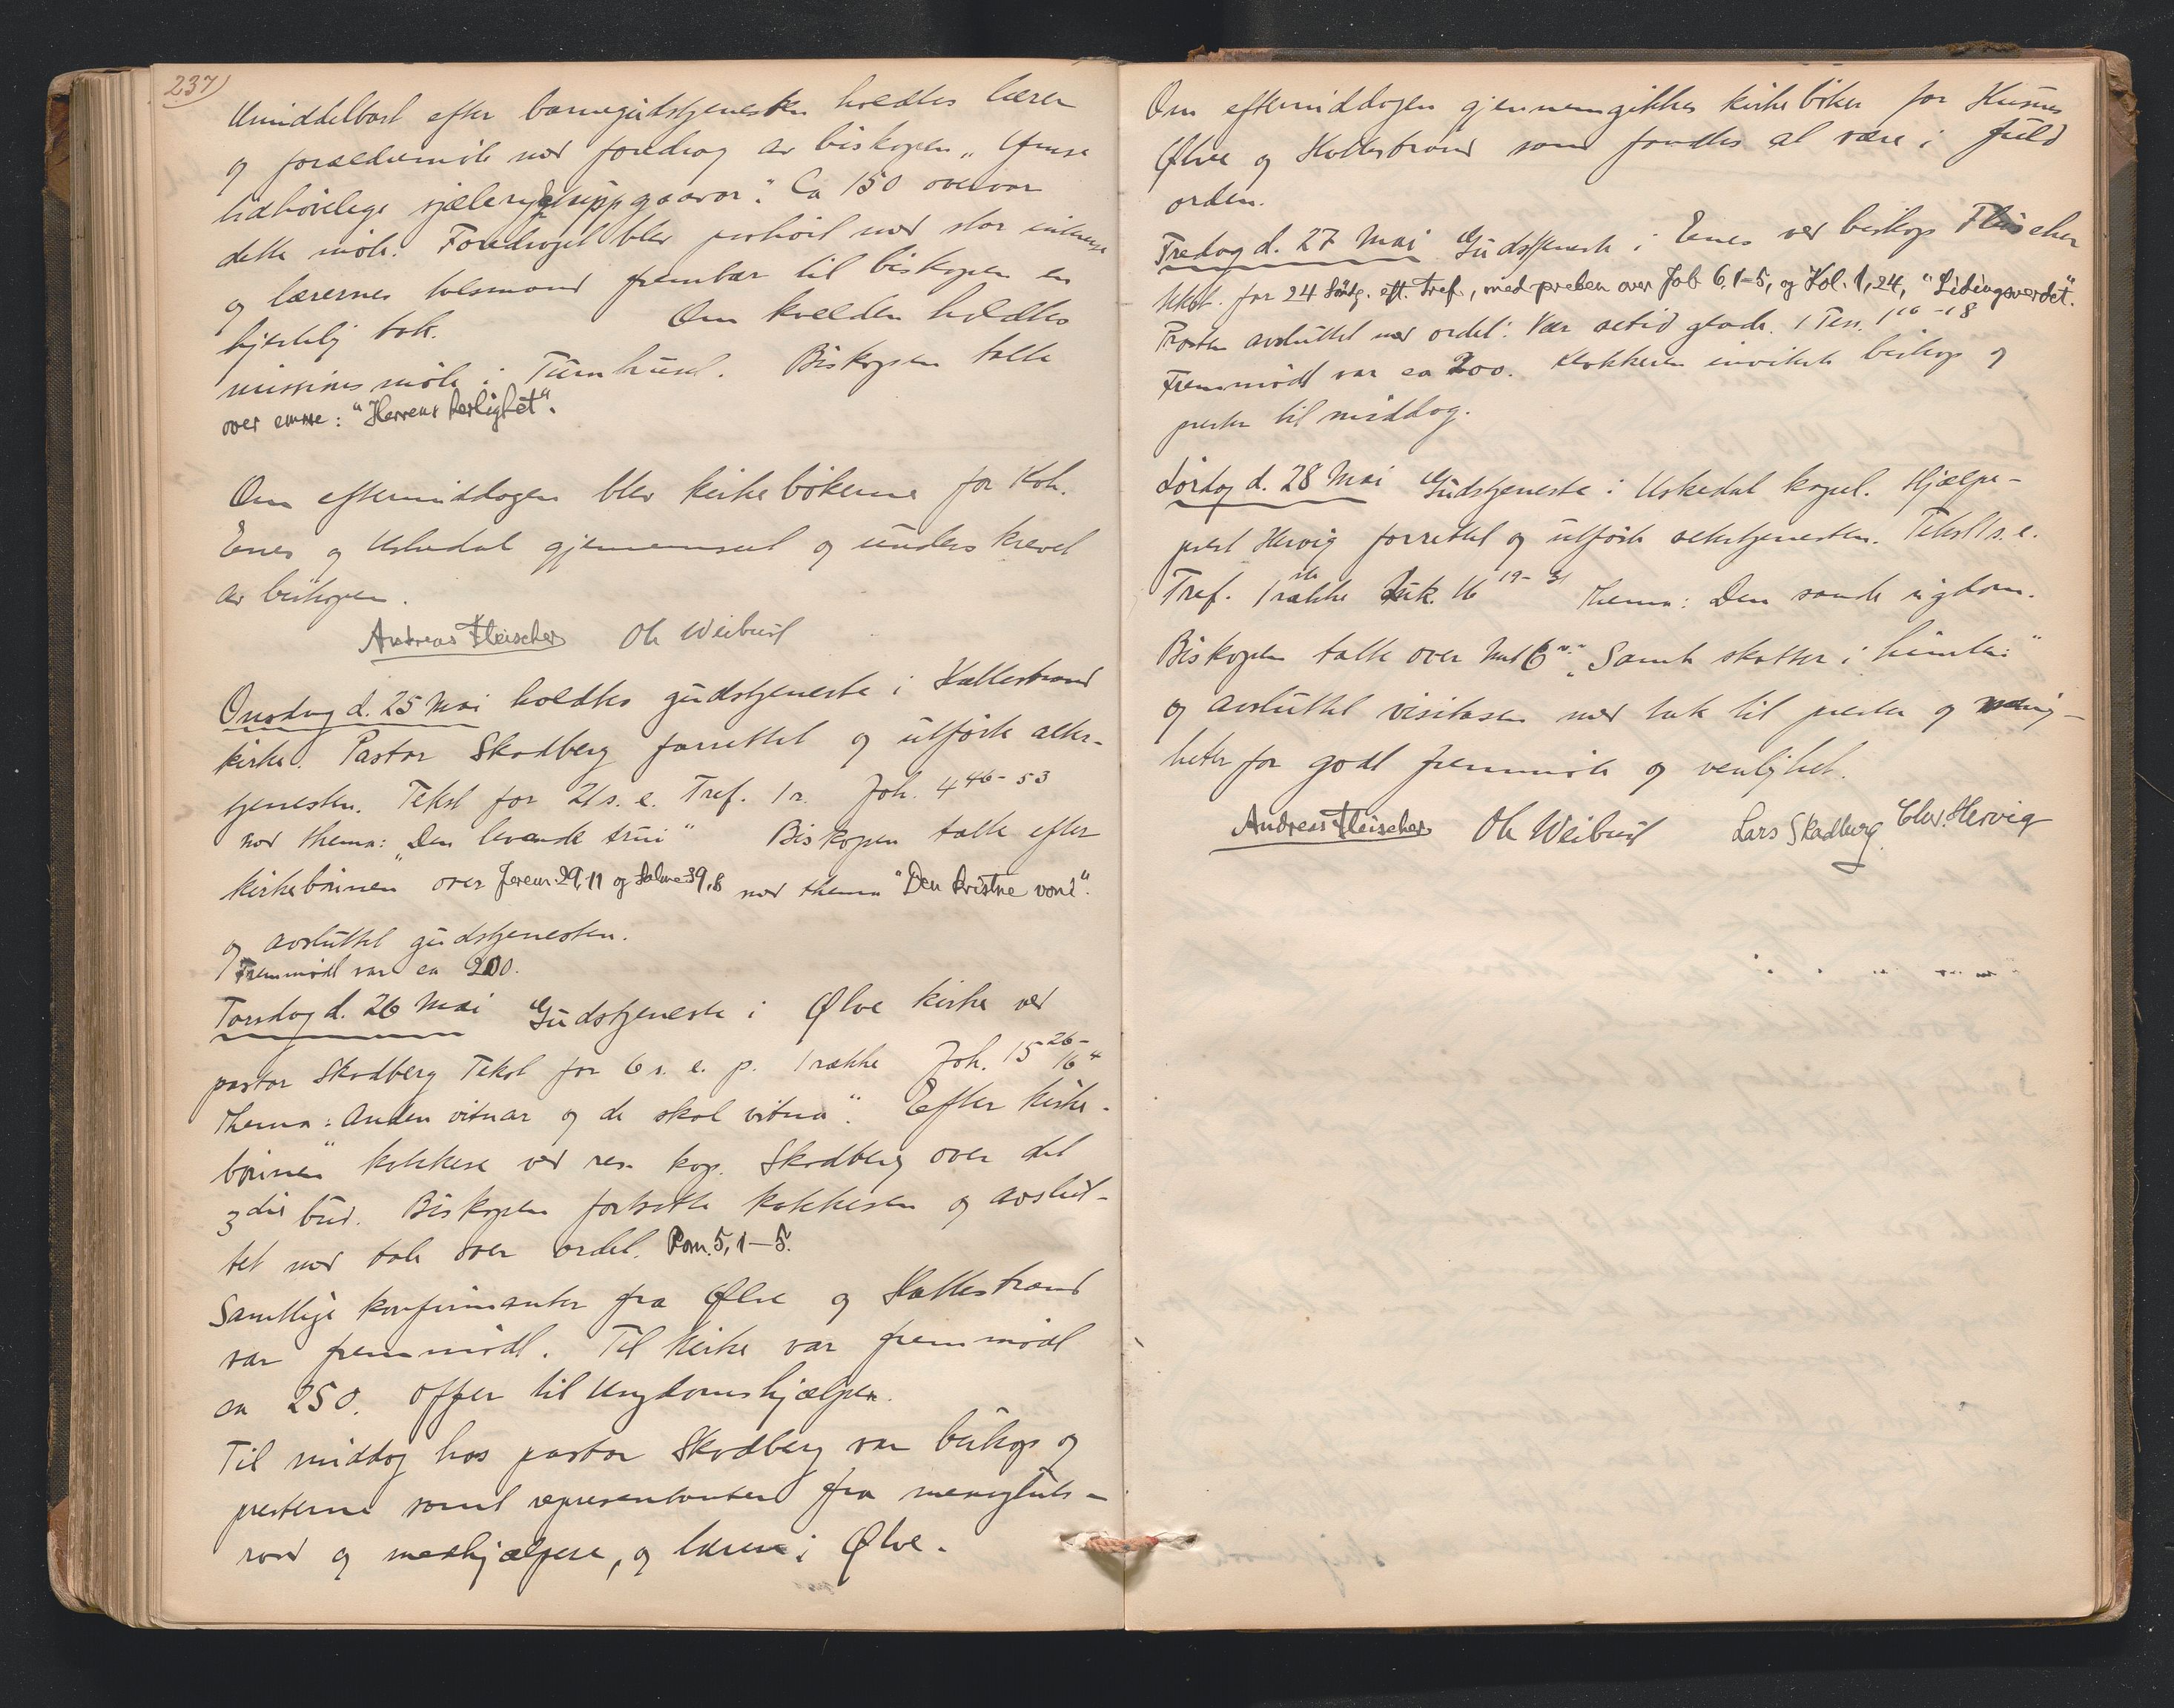 237)
Umiddelbart efter barnegudstjenesten holdtes lærer
og forældremöte med foredrag av biskopen „Ymse
tidhövelege sjælerygtuppgaavor." Ca 150 overvar
dette möte. Foredraget blev paahört med stor interesse
og lærernes talsmand frembar til biskopen en
hjertelig tak. Om kvelden holdtes
missionsmöte i Turnhuset. Biskopen talte
over emne: "Herrens herlighet".
Om eftermiddagen blev kirkebökerne for Kvh.
Enes og Uskedal gjennemset og underskrevet
av biskopen.
Andreas Fleischer Ole Weibust
Onsdag d. 25 Mai holdtes gudstjeneste i Hattestrand
kirke. Pastor Skadberg forrettet og utförte alter-
tjenesten. Tekst for 21 s. e. Tref. 1 r. Joh. 4 46-53
med thema: „Den levande trui" Biskopen talte efter
kirkebönnen over Jerem. 29,11 og Salme 39,8 med thema "Den kristne voni".
og avsluttet gudstjenesten.
Fremmödt var ca 200.
Torsdag d. 26 Mai Gudstjeneste i Ølve kirke ved
pastor Skadberg Tekst for 6 s. e. p. 1 række Joh. 15 26-
16 4
Thema: Anden vitnar og de skal vitna". Efter kirke-
bönnen kokkese ved res. kap. Skadberg over det
3die bud. Biskopen fortsatte katekesen og avslut-
tet med tale over ordet. Rom. 5, 1-5.
Samtlige konfirmanter fra Ølve og Hattestrand
var fremmödt. Til kirke var fremmödt
ca 250. Offer til Ungdomshjælpen.
Til middag hos pastor Skadberg var biskop og
presterne samt representanter fra menighets-
raad og medhjælpere, og lærere i Ølve.
Om eftermiddagen gjennemgikkes kirkeböker for Husnes
Ølve og Hattestrand som fandtes at være i fuld
orden.
Fredag d. 27 Mai Gudstjeneste i Enes ved biskop Fleischer
tekst. for 24 Söndg. eft. Tref., med preken over Job 6, 1-5, og Kol. 1, 24, "Lidingsverdet".
Prosten avsluttet med ordet: Vær altid glade. 1 Tess. 1 16-18
Fremmödt var ca 200. Klokkeren inviterte biskop og
prester til middag.
Lördag d. 28 Mai Gudstjeneste i Uskedal kapel. Hjælpe-
prest Hervig forrettet og utförte altertjenesten. Tekst 1 s. e.
Tref. 1ste række Luk. 16 19-31 Thema: Den sande rigdom.
Biskopen talte over Mat 6 „Samle skatter i himlen"
og avsluttet visitasen med tak til prester og menig-
heter for godt fremmöte og venlighet.
Andreas Fleischer Ole Weibust Lars Skadberg. Chr. Hervig